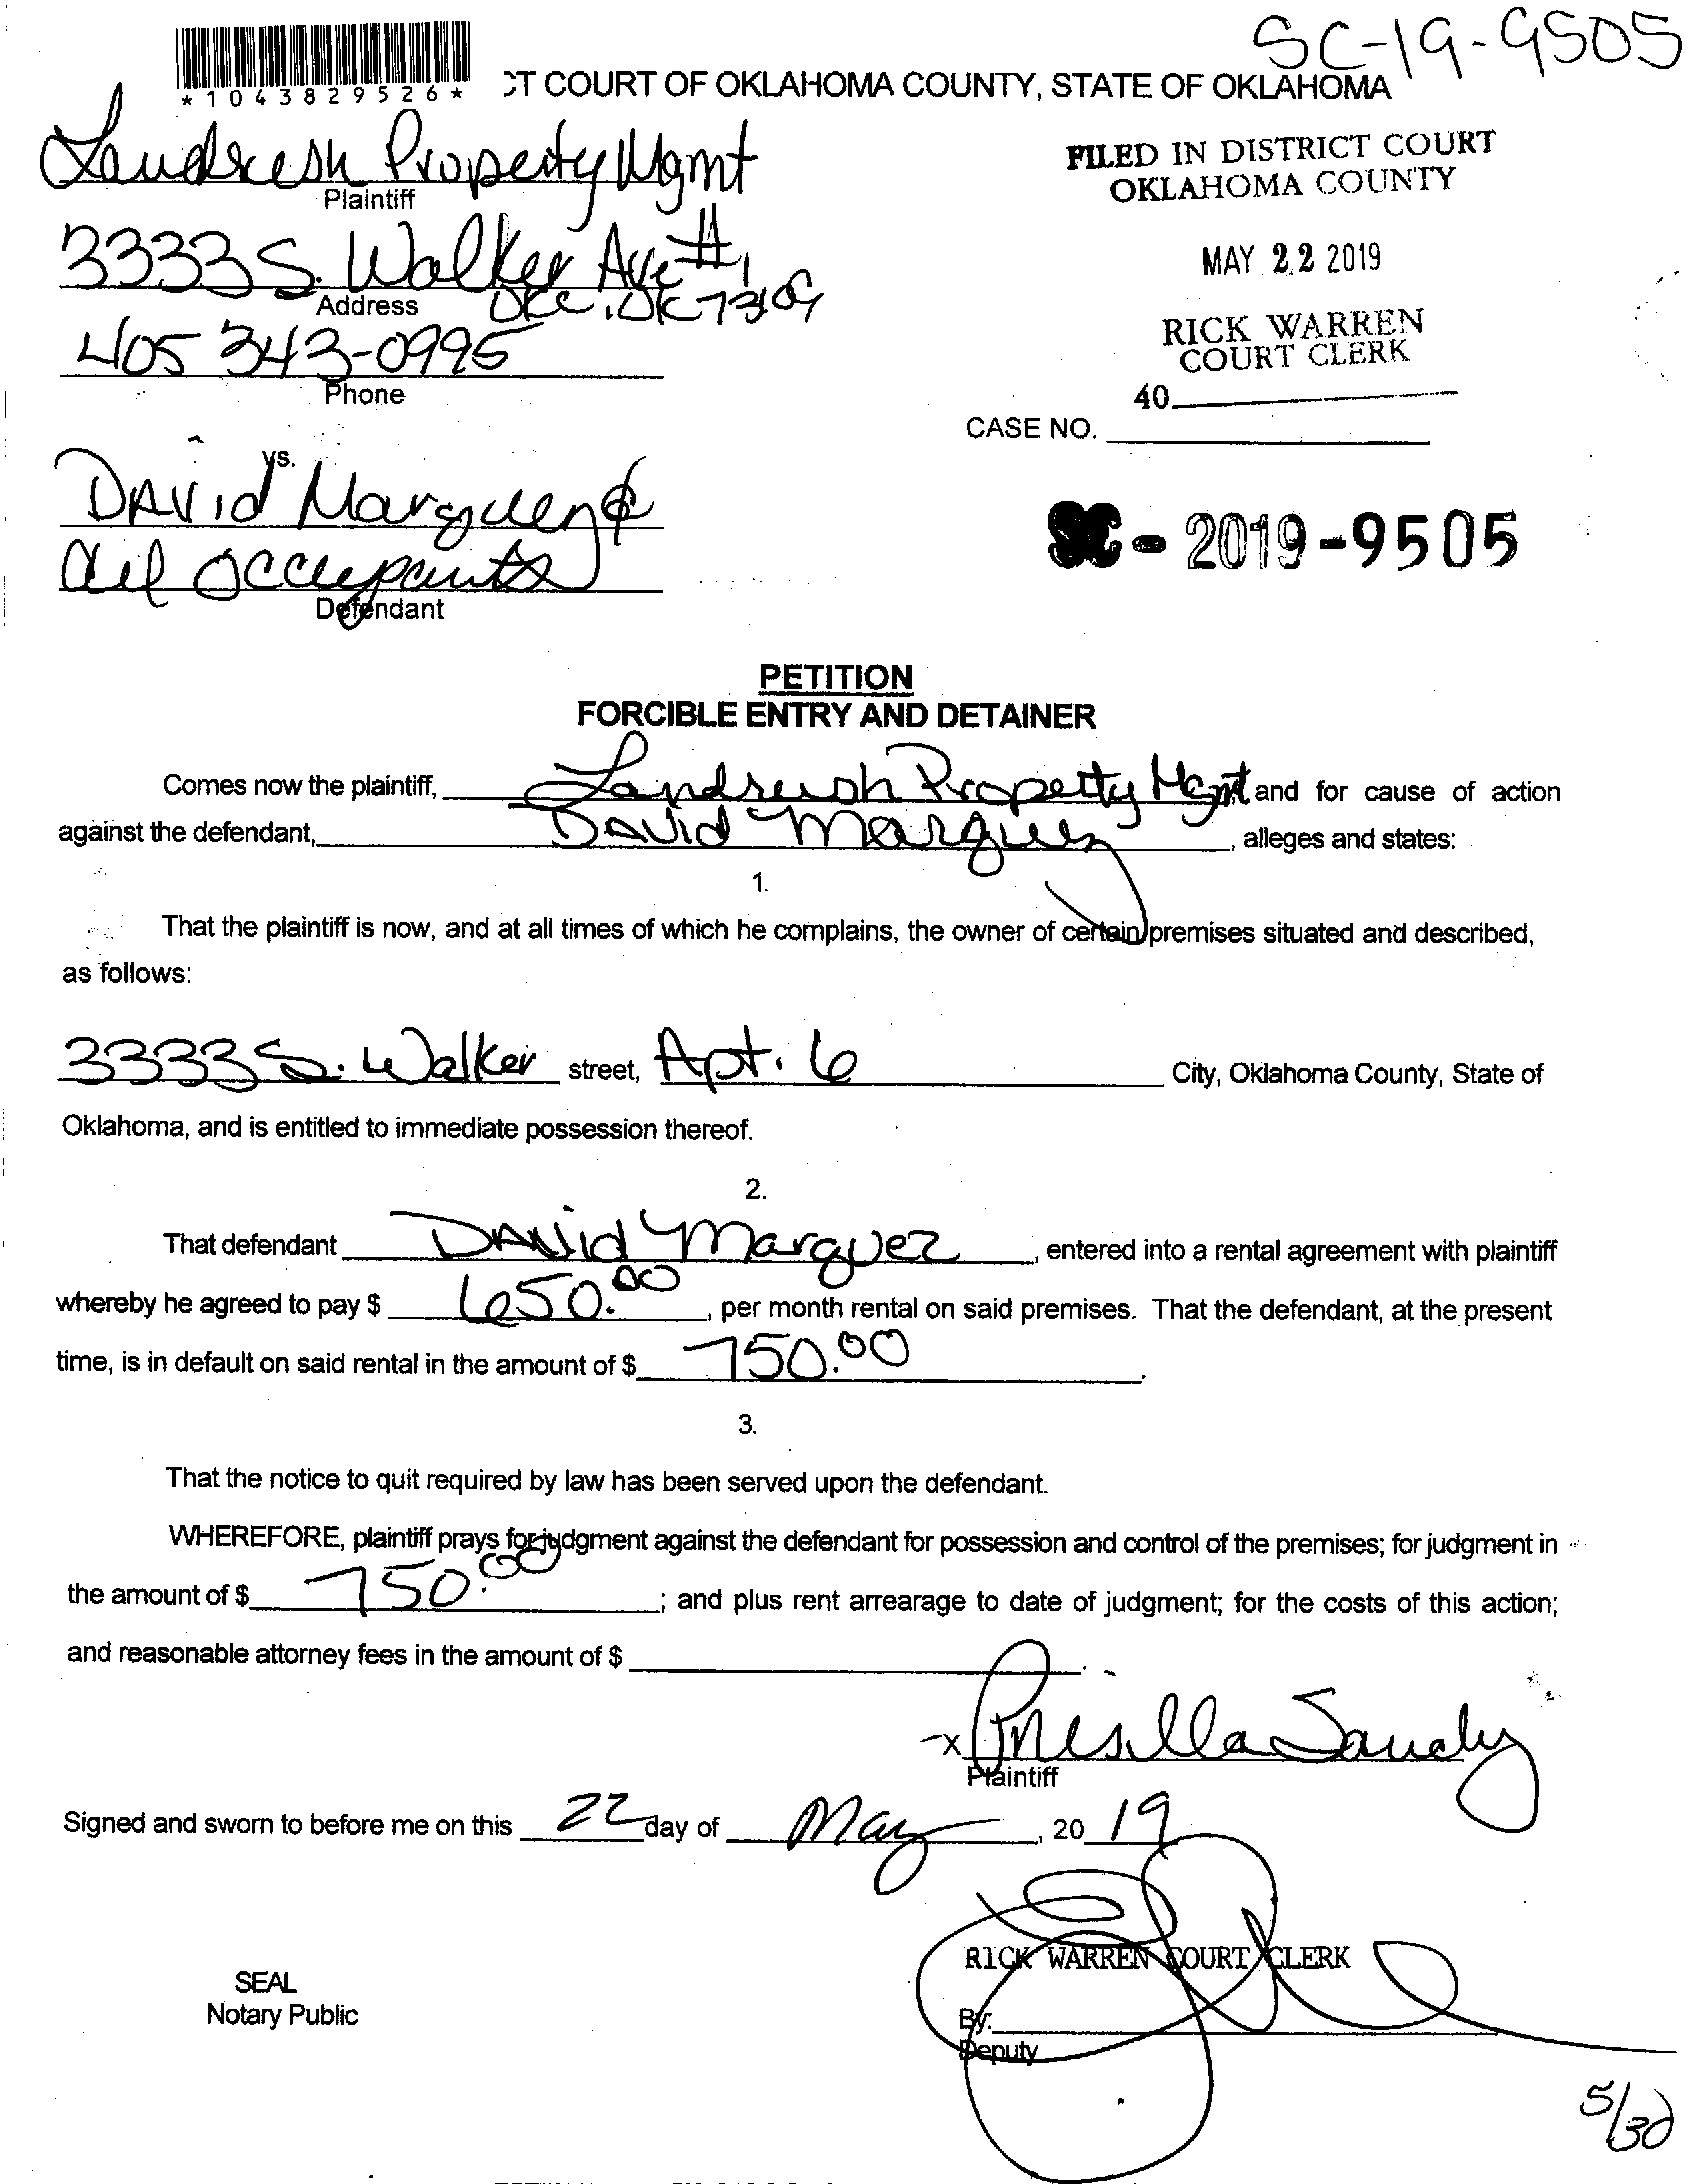 SC-19-9505
*1043829526*
CT COURT OF OKLAHOMA COUNTY, STATE OF OKLAHOMA
Landresh Property Mgmt
Plaintiff
3333 S. Walker Ave #1
Address OKC, OK 73109
405 343-0995
Phone
FILED IN DISTRICT COURT
OKLAHOMA COUNTY
MAY 22 2019
RICK WARREN
COURT CLERK
40
CASE NO.
SC - 2019 - 9505
vs.
David Marquez &
all occupants
Defendant
PETITION
FORCIBLE ENTRY AND DETAINER
Comes now the plaintiff, Landresh Property Mgmt and for cause of action
against the defendant, David Marquez, alleges and states:
1.
That the plaintiff is now, and at all times of which he complains, the owner of certain premises situated and described,
as follows:
3333 S. Walker street, Apt. 6 City, Oklahoma County, State of
Oklahoma, and is entitled to immediate possession thereof.
2.
That defendant David Marquez, entered into a rental agreement with plaintiff
whereby he agreed to pay $ 650.00, per month rental on said premises. That the defendant, at the present
time, is in default on said rental in the amount of $ 750.00.
3.
That the notice to quit required by law has been served upon the defendant.
WHEREFORE, plaintiff prays for judgment against the defendant for possession and control of the premises; for judgment in
the amount of $ 750.00; and plus rent arrearage to date of judgment; for the costs of this action;
and reasonable attorney fees in the amount of $
x Prisilla
Plaintiff
Signed and sworn to before me on this 22 day of May, 20 19
RICK WARREN COURT CLERK
SEAL
Notary Public
By:
Deputy
5/30